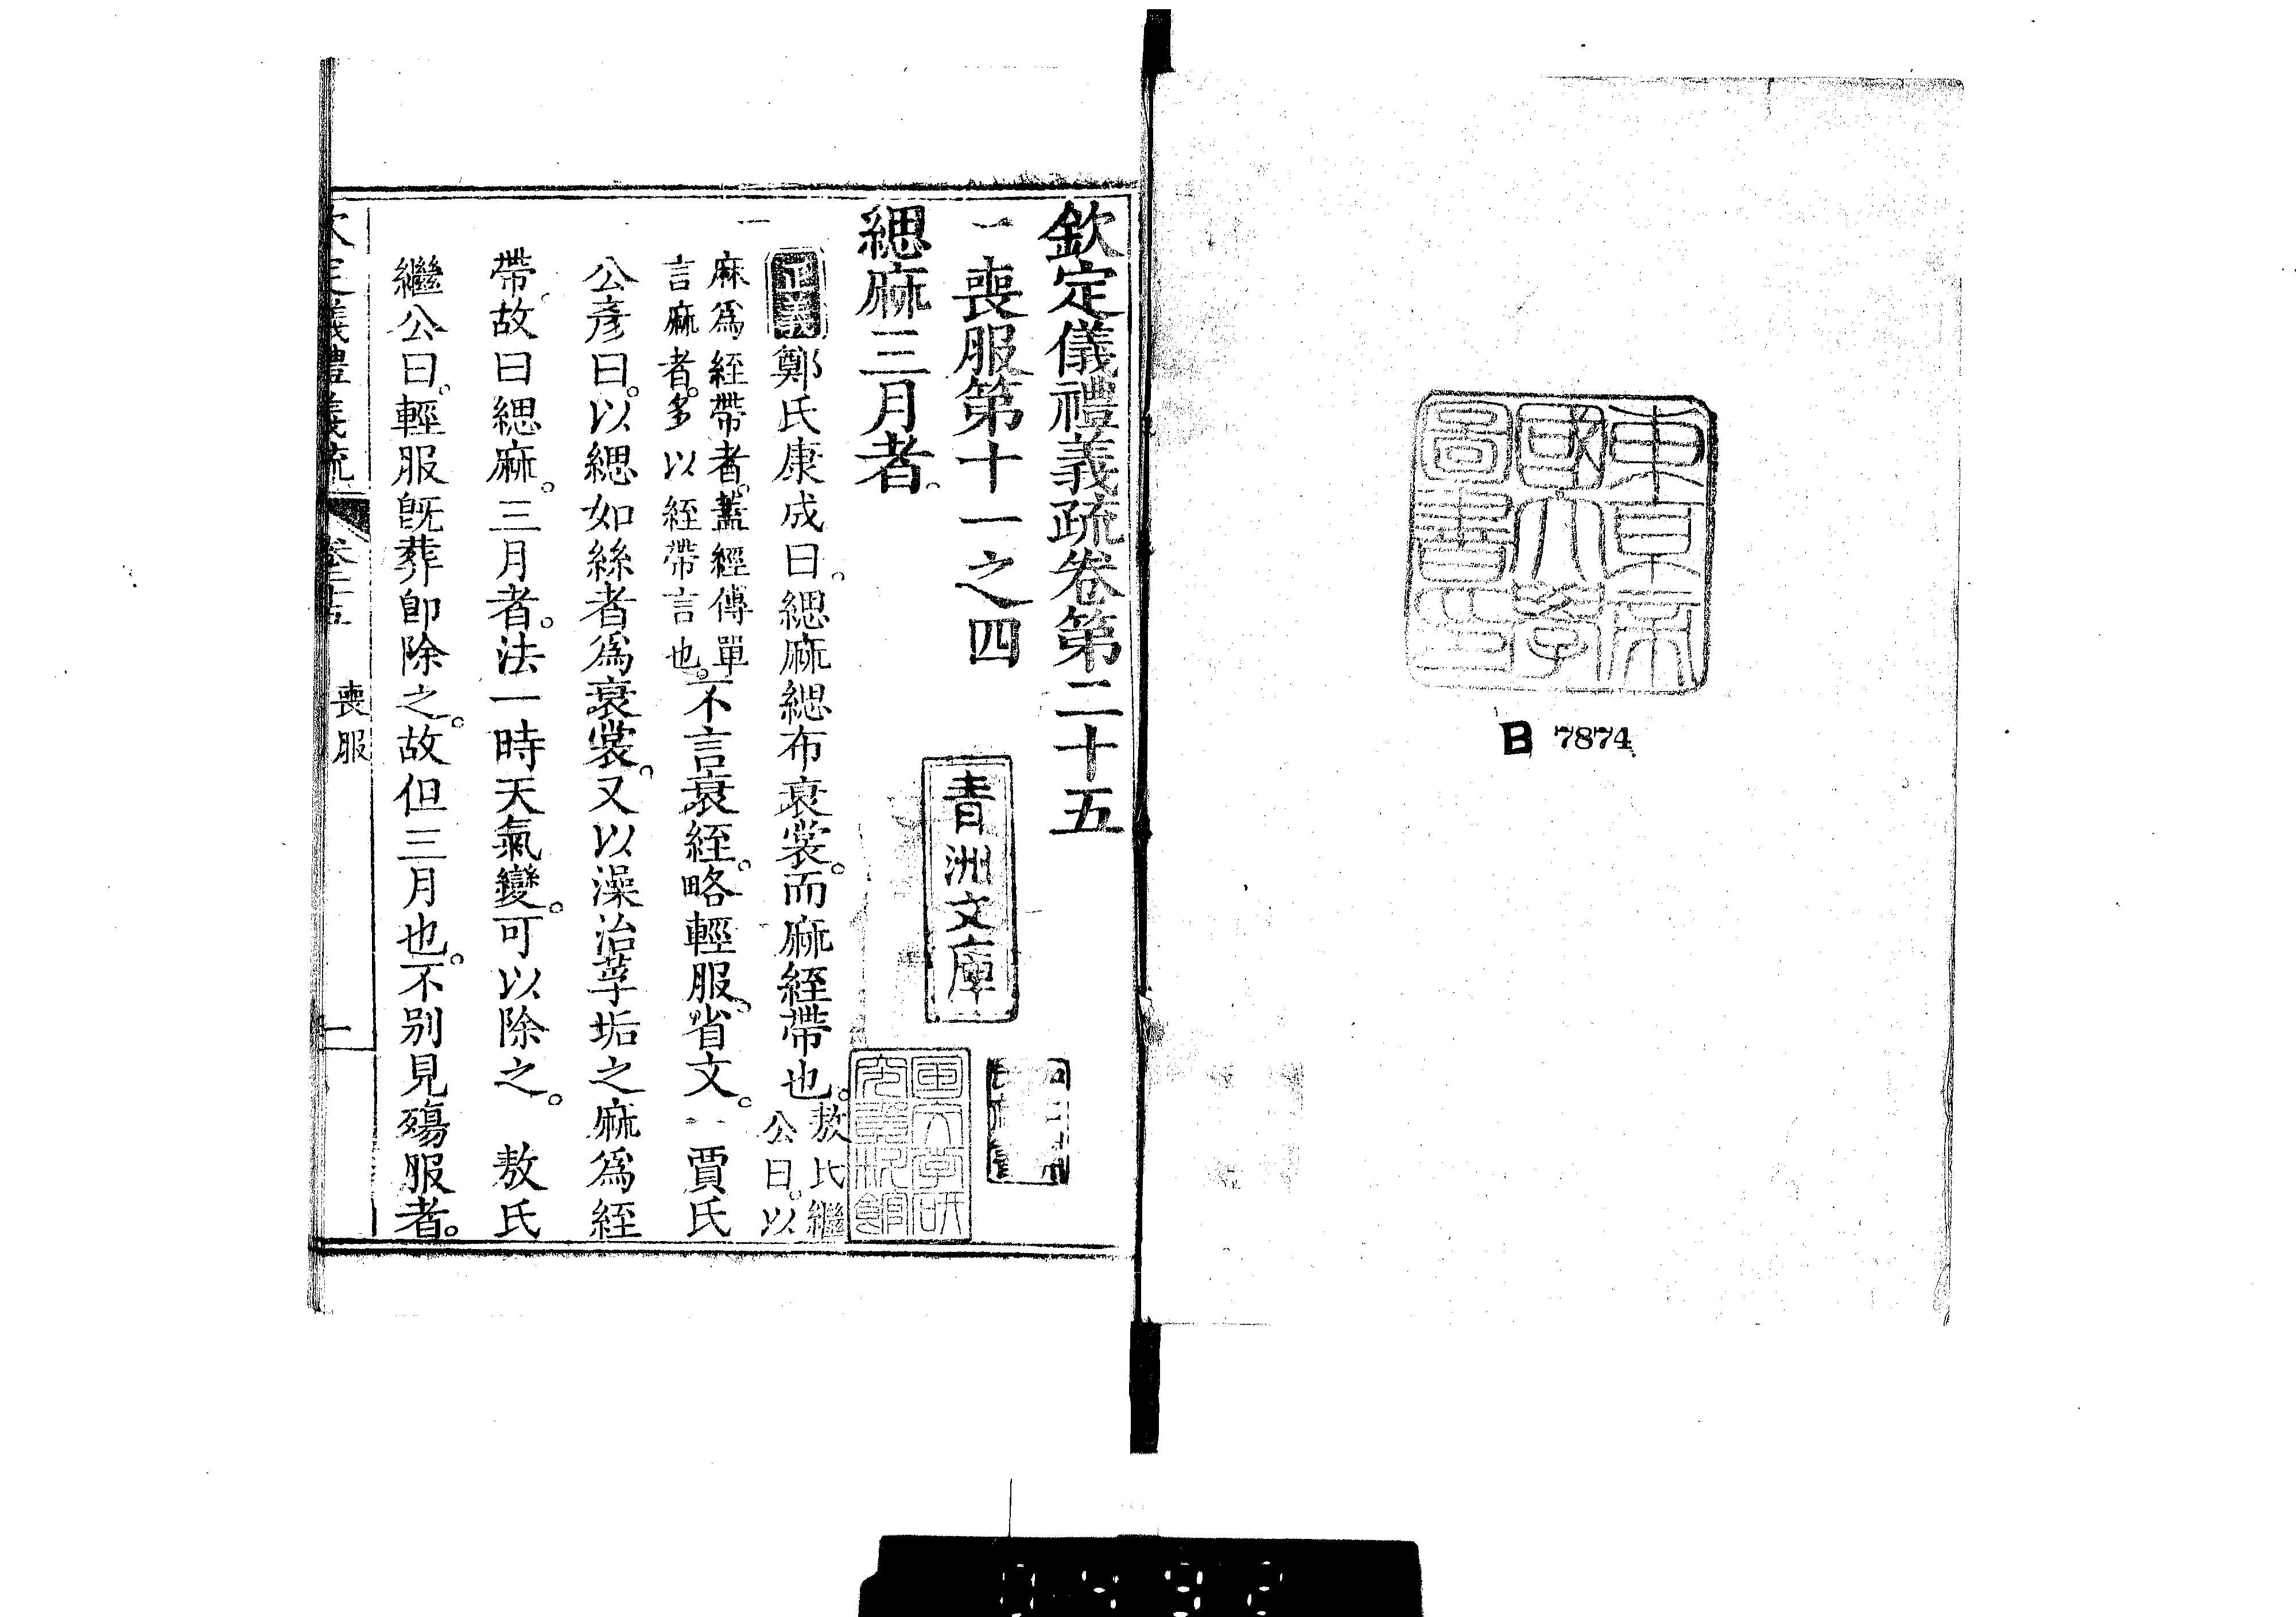 東京帝
國大學
圖書印
B 7874
欽定儀禮義疏卷第二十五
喪服第十一之四
青洲文庫
緦麻三月者。
正義 鄭氏康成曰。緦麻緦布衰裳。而麻絰帶也。敖氏繼公曰。以
麻爲絰帶者。蓋經傳單言麻者。多以絰帶言也。不言衰絰。略輕服。省文。 賈氏
公彥曰。以緦如絲者爲衰裳。又以澡治莩垢之麻爲絰
帶。故曰緦麻。三月者。法一時天氣變。可以除之。 敖氏
繼公曰。輕服旣葬卽除之。故但三月也。不別見殤服者。
欽定儀禮義疏 卷二十五 喪服 一